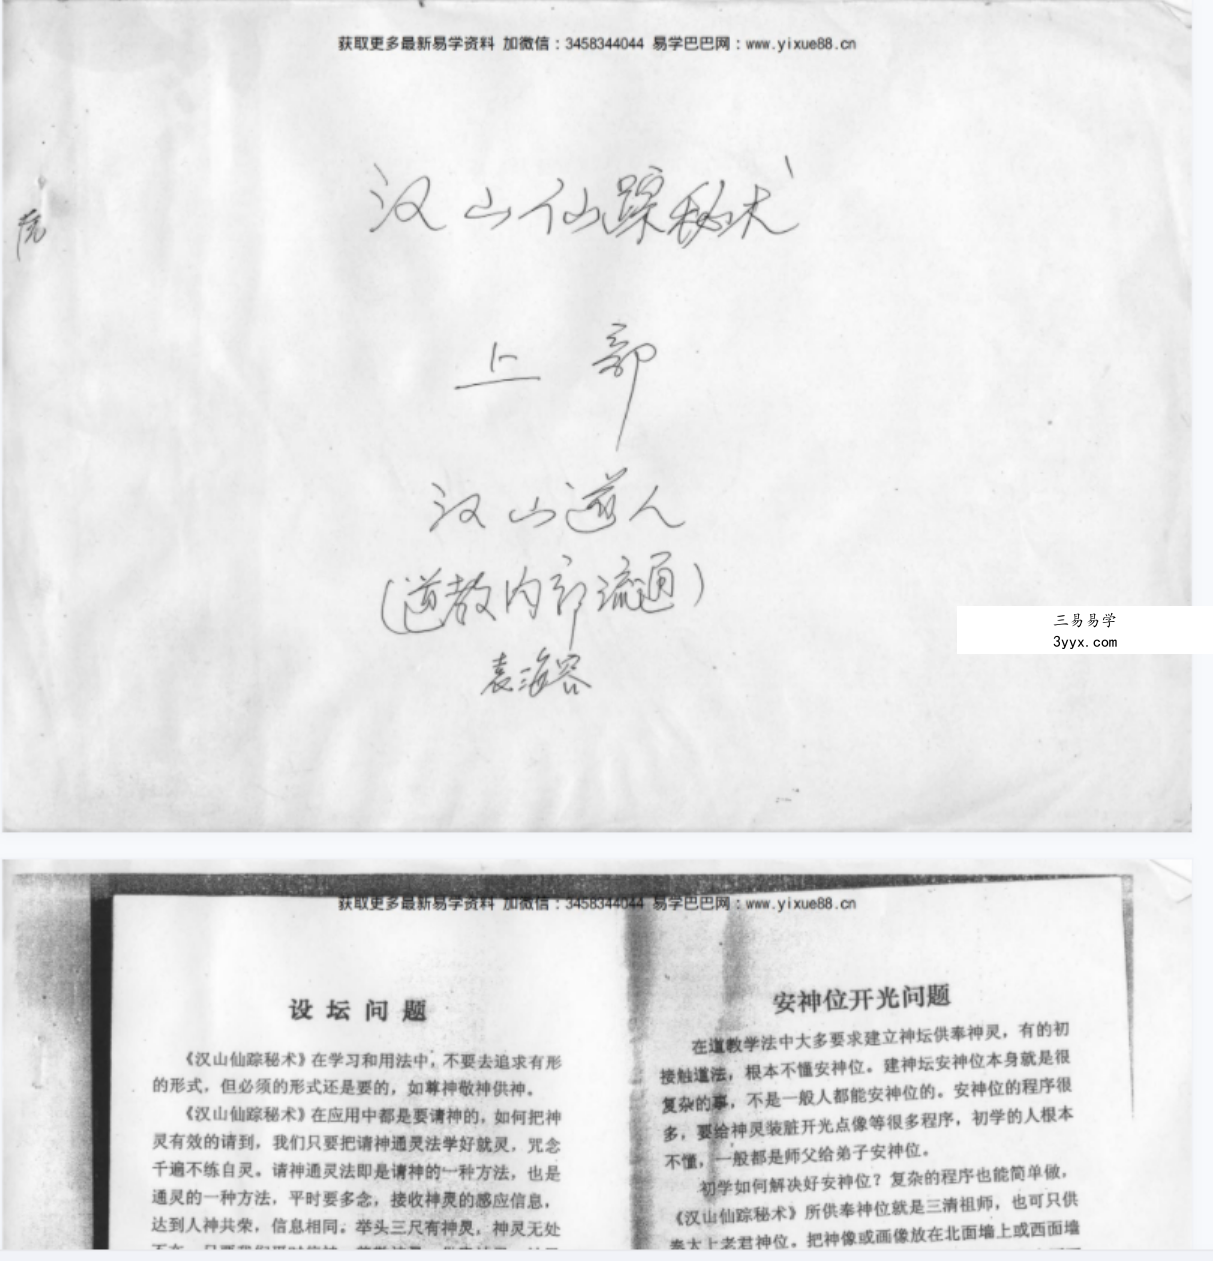 获取更多最新易学资料 加微信：3458344044 易学巴巴网：www.yixue88.cn
汉山仙踪秘术
上部
汉山道人
(道教内部流通)
袁海容
三易易学
3yyx.com
获取更多最新易学资料 加微信：3458344044 易学巴巴网：www.yixue88.cn
设坛问题
《汉山仙踪秘术》在学习和用法中，不要去追求有形
的形式，但必须的形式还是要的，如尊神敬神供神。
《汉山仙踪秘术》在应用中都是要请神的，如何把神
灵有效的请到，我们只要把请神通灵法学好就灵，咒念
千遍不练自灵。请神通灵法即是请神的一种方法，也是
通灵的一种方法，平时要多念，接收神灵的感应信息，
达到人神共荣，信息相同。举头三尺有神灵，神灵无处
安神位开光问题
在道教学法中大多要求建立神坛供奉神灵，有的初
接触道法，根本不懂安神位。建神坛安神位本身就是很
复杂的事，不是一般人都能安神位的。安神位的程序很
多，要给神灵装脏开光点像等很多程序，初学的人根本
不懂，一般都是师父给弟子安神位。
初学如何解决好安神位？复杂的程序也能简单做，
《汉山仙踪秘术》所供奉神位就是三清祖师，也可只供
奉太上老君神位。把神像或画像放在北面墙上或西面墙